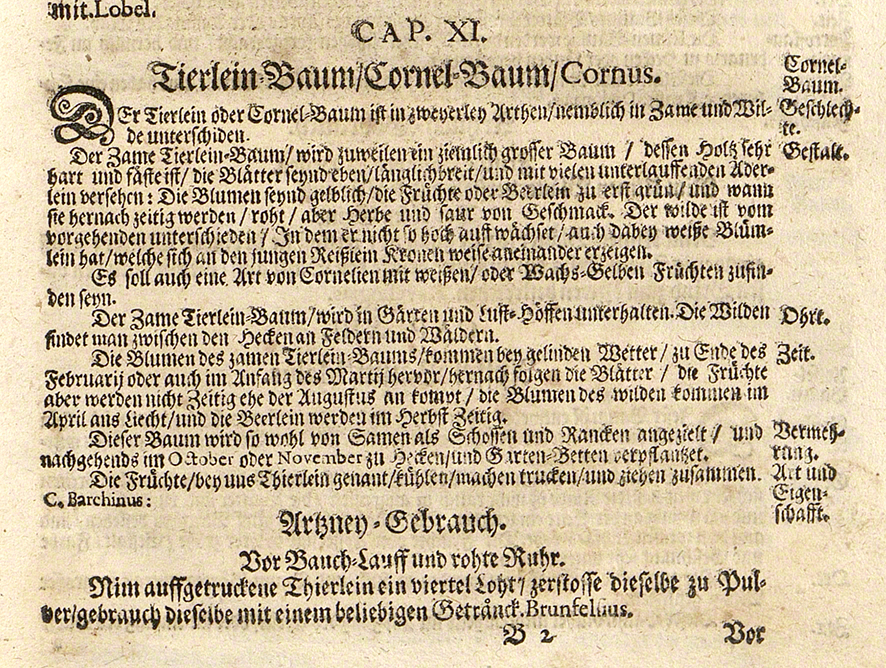 mit. Lobel.
CAP. XI.
Tierlein-Baum/Cornel-Baum/Cornus.
Cornel-
Baum.
DEr Tierlein oder Cornel-Baum ist in zweyerley Arthen/nemblich in Zame und Wil-
de unterschiden.
Geschlech-
te.
Der Zame Tierlein-Baum/ wird zuweilen ein ziemlich grosser Baum / dessen Holtz sehr
Gestalt.
hart und fäste ist/ die Blätter seynd eben/länglichbreit/und mit vielen unterlauffenden Ader-
lein versehen: Die Blumen seynd gelblich/die Früchte oder Beerlein zu erst grün/ und wann
sie hernach zeitig werden / roht / aber Herbe und saur von Geschmack. Der wilde ist vom
vorgehenden unterschieden / In dem er nicht so hoch auff wächset/auch dabey weiße Blüm-
lein hat/welche sich an den jungen Reißlein Kronen weise aneinander erzeigen.
Es soll auch eine Art von Cornelien mit weißen/ oder Wachs-Gelben Früchten zufin-
den seyn.
Der Zame Tierlein-Baum/wird in Gärten und Lust-Höffen unterhalten. Die Wilden
Ohrt.
findet man zwischen den Hecken an Feldern und Wäldern.
Die Blumen des zamen Tierlein-Baums/kommen bey gelinden Wetter / zu Ende des
Zeit.
Februarij oder auch im Anfang des Martij hervor/hernach folgen die Blätter / die Früchte
aber werden nicht Zeitig ehe der Augustus an kompt / die Blumen des wilden kommen im
April ans Liecht/und die Beerlein werden im Herbst Zeitig.
Dieser Baum wird so wohl von Samen als Schossen und Rancken angezielt / und
Vermeh-
rung.
nachgehends im October oder November zu Hecken/und Garten-Betten verpflantzet.
Die Früchte/bey uns Thierlein genant/kühlen/machen trucken/und ziehen zusammen.
Art und
Eigen-
schafft.
C. Barchinus:
Artzney-Gebrauch.
Vor Bauch-Lauff und rohte Ruhr.
Nim auffgetruckene Thierlein ein viertel Loht/ zerstosse dieselbe zu Pul-
ver/gebrauch dieselbe mit einem beliebigen Getränck. Brunfelsius.
B 2
Vor